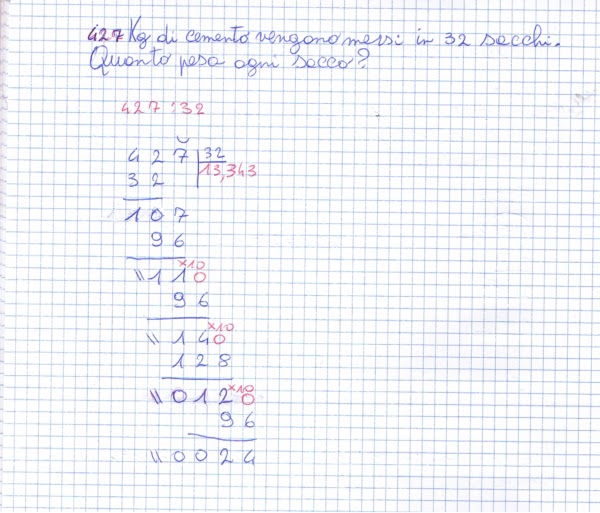 427 Kg di cemento vengono messi in 32 sacchi.
Quanto pesa ogni sacco?
427 : 32
427 32
32 13,343
107
96
x10
\\110
96
x10
\\140
128
x10
\\0120
96
\\0024